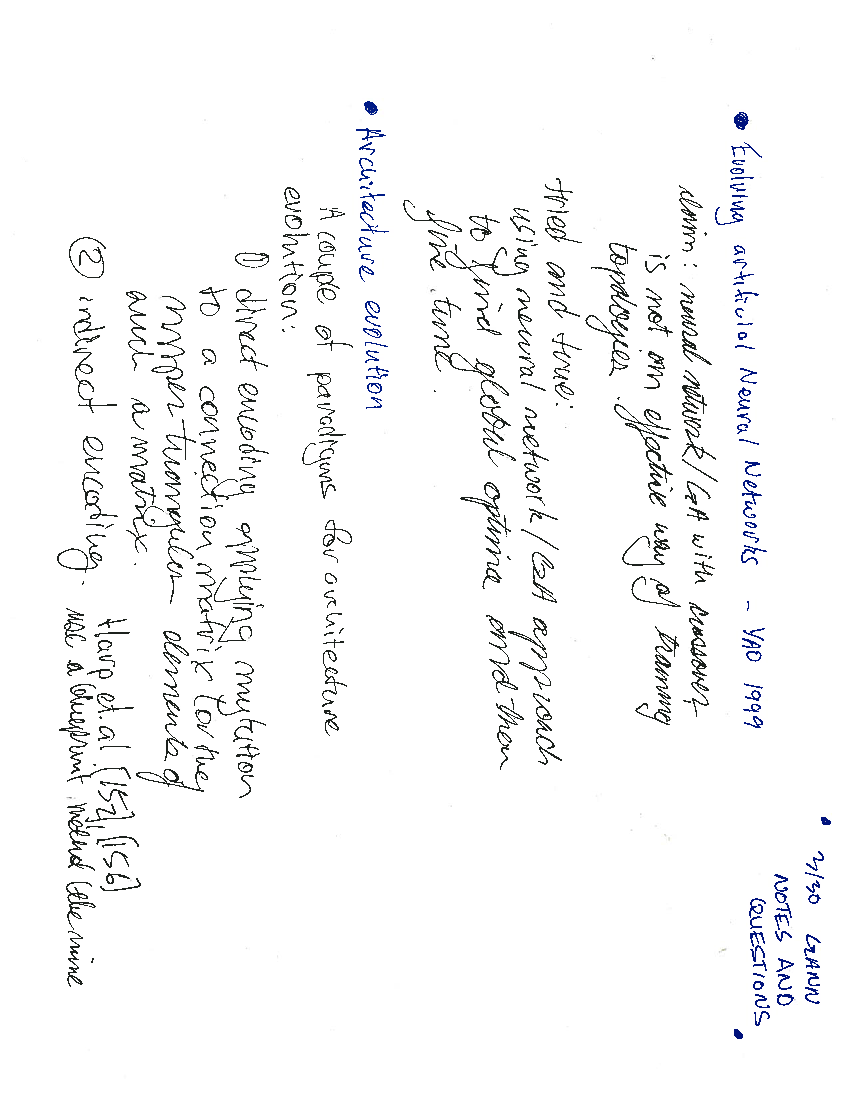 • 3/30 GANN
NOTES AND
QUESTIONS •
• Evolving artificial Neural Networks - YAO 1999
claim: neural network/GA with crossover
is not an effective way of training
topologies.
tried and true:
using neural network/GA approach
to find global optima and then
fine tune.
• Architecture evolution
A couple of paradigms for architecture
evolution:
① direct encoding applying mutation
to a connection matrix (or the
upper triangular elements of
such a matrix.
② indirect encoding. Harp et al [152], [156]
use a blueprint method (like mine